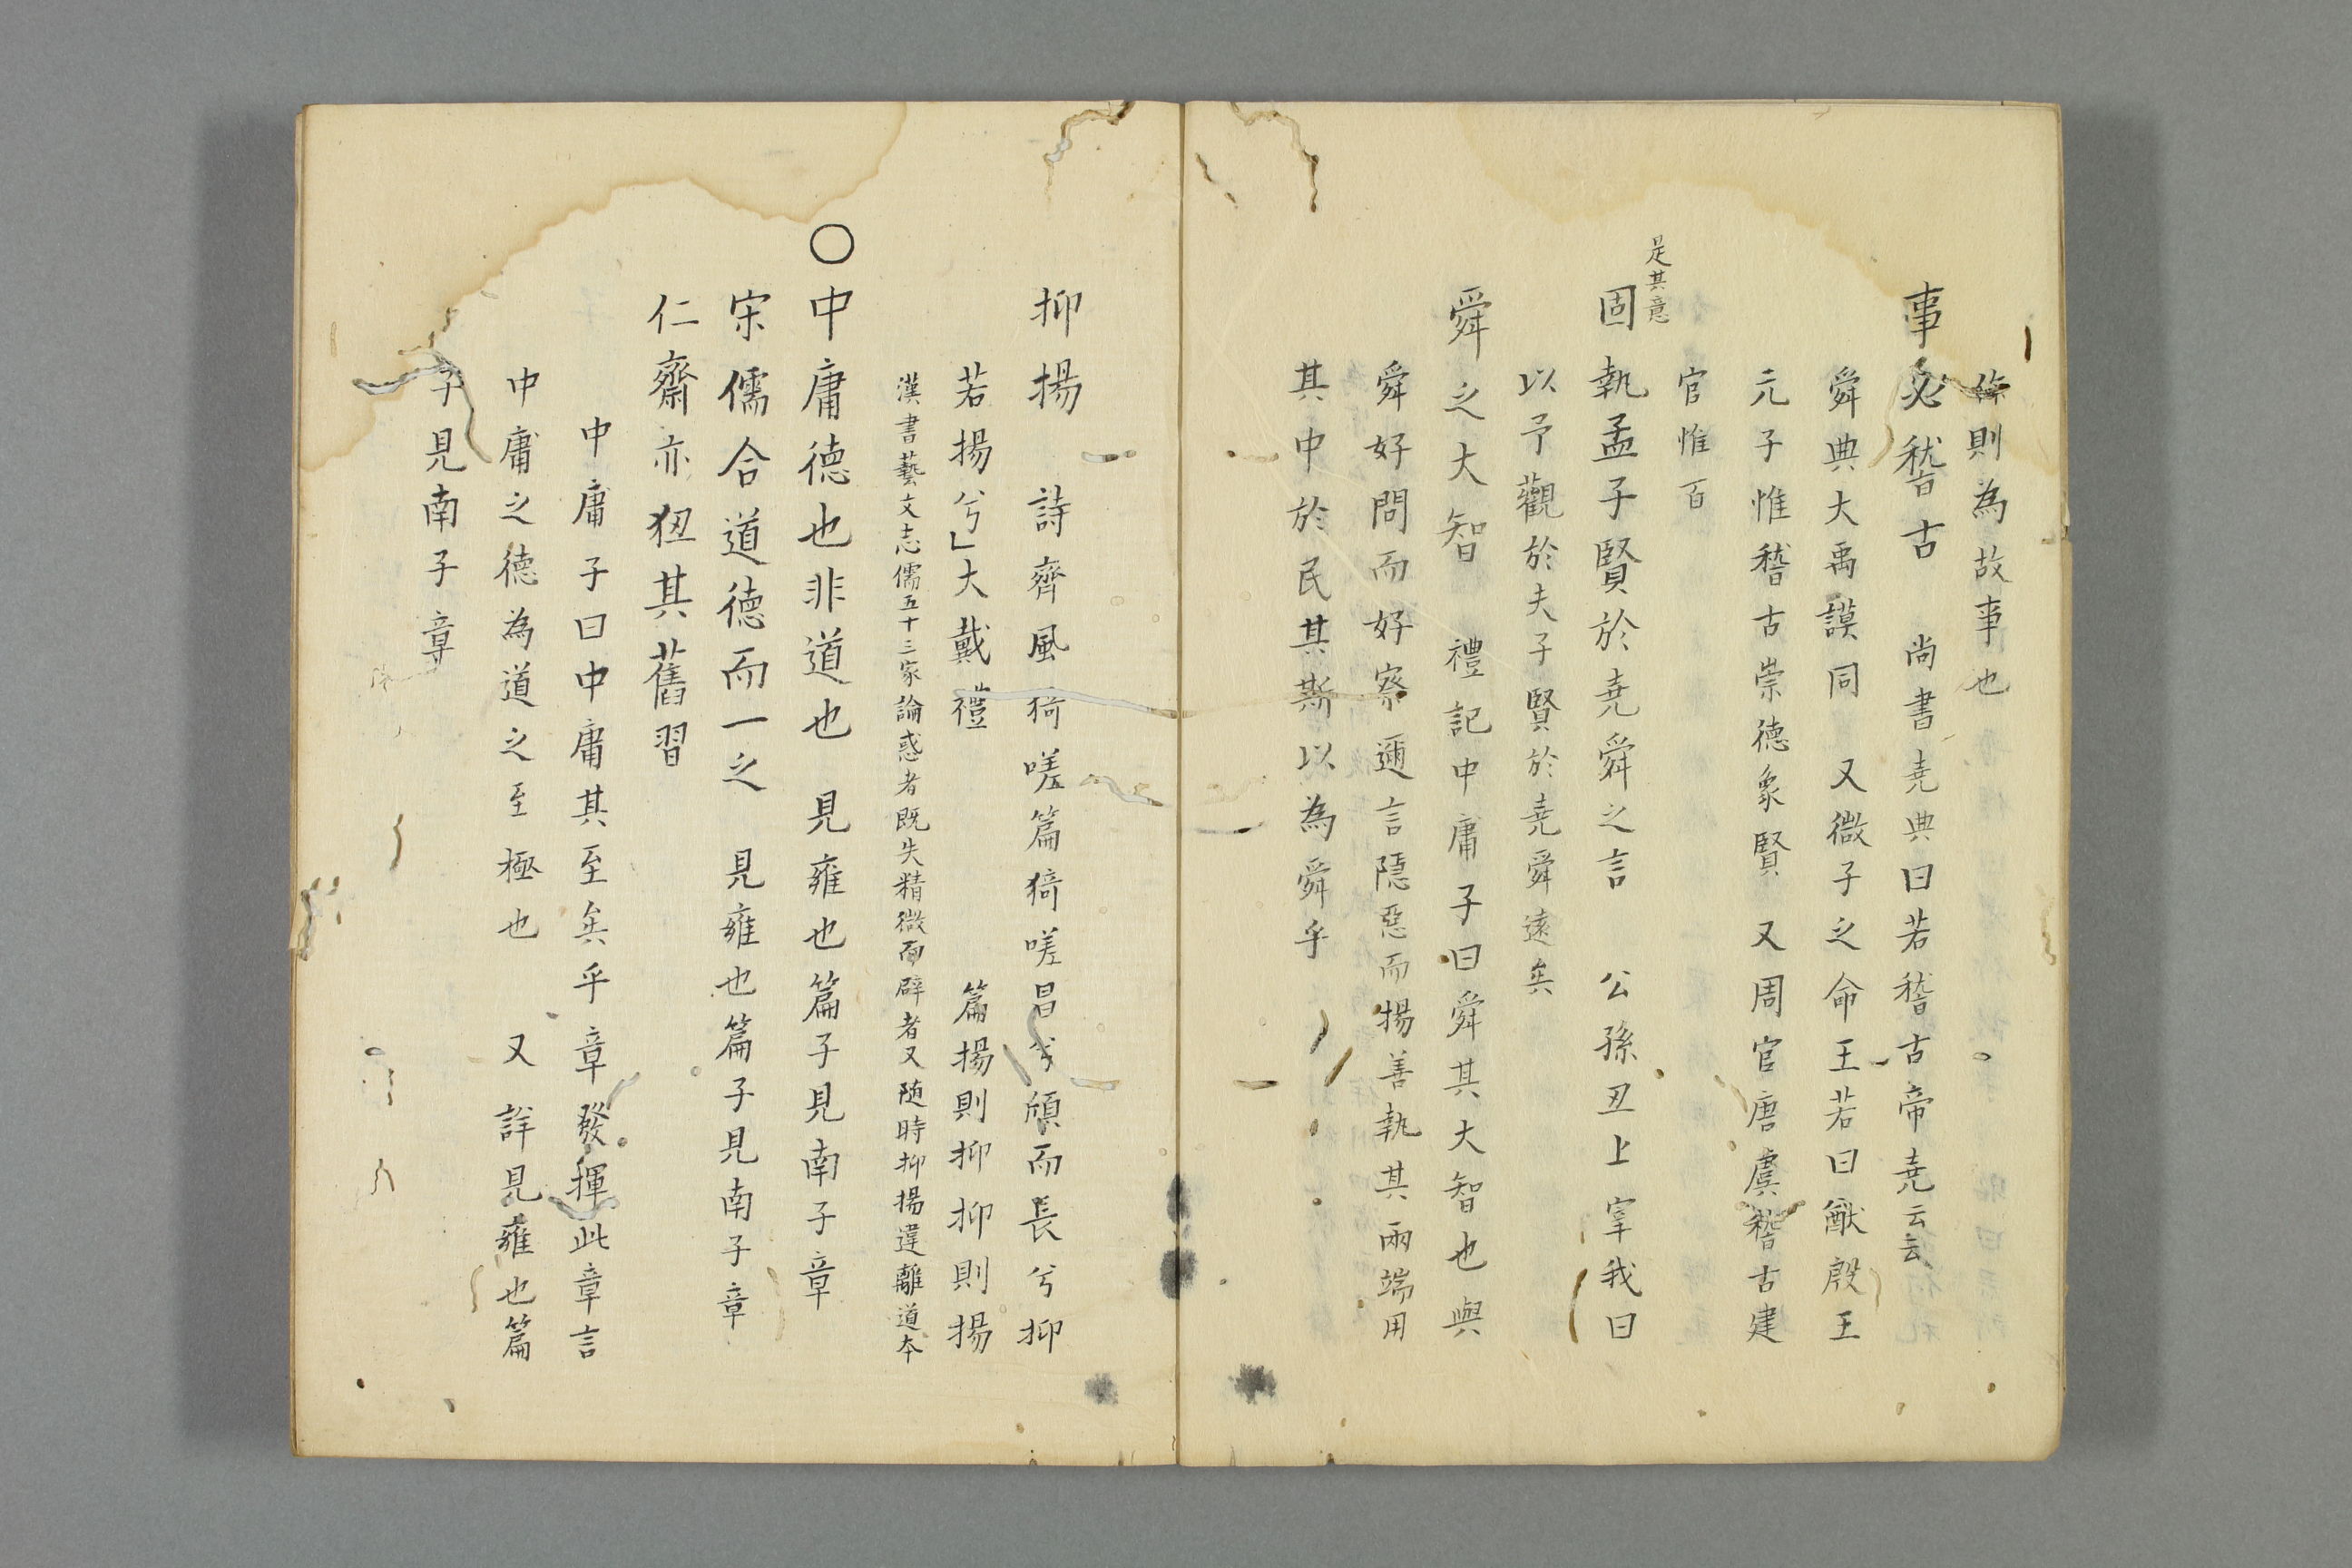 條則為故事也
事必稽古　尚書堯典曰若稽古帝堯云云
舜典大禹謨同　又微子之命王若曰猷殷王
元子惟稽古崇德象賢　又周官唐虞稽古建
官惟百
是其意
固執孟子賢於堯舜之言　公孫丑上宰我曰
以予觀於夫子賢於堯舜遠矣
舜之大智　禮記中庸子曰舜其大智也與
舜好問而好察邇言隱惡而揚善執其兩端用
其中於民其斯以為舜乎
抑揚　詩齊風猗嗟篇猗嗟昌兮頎而長兮抑
若揚兮」大戴禮　　　篇揚則抑抑則揚
漢書藝文志儒五十三家論惑者既失精微而辟者又随時抑揚違離道本
○中庸德也非道也　見雍也篇子見南子章
宋儒合道德而一之　見雍也篇子見南子章
仁齋亦狃其舊習
中庸子曰中庸其至矣乎章發揮此章言
中庸之德為道之至極也　又詳見雍也篇
子見南子章